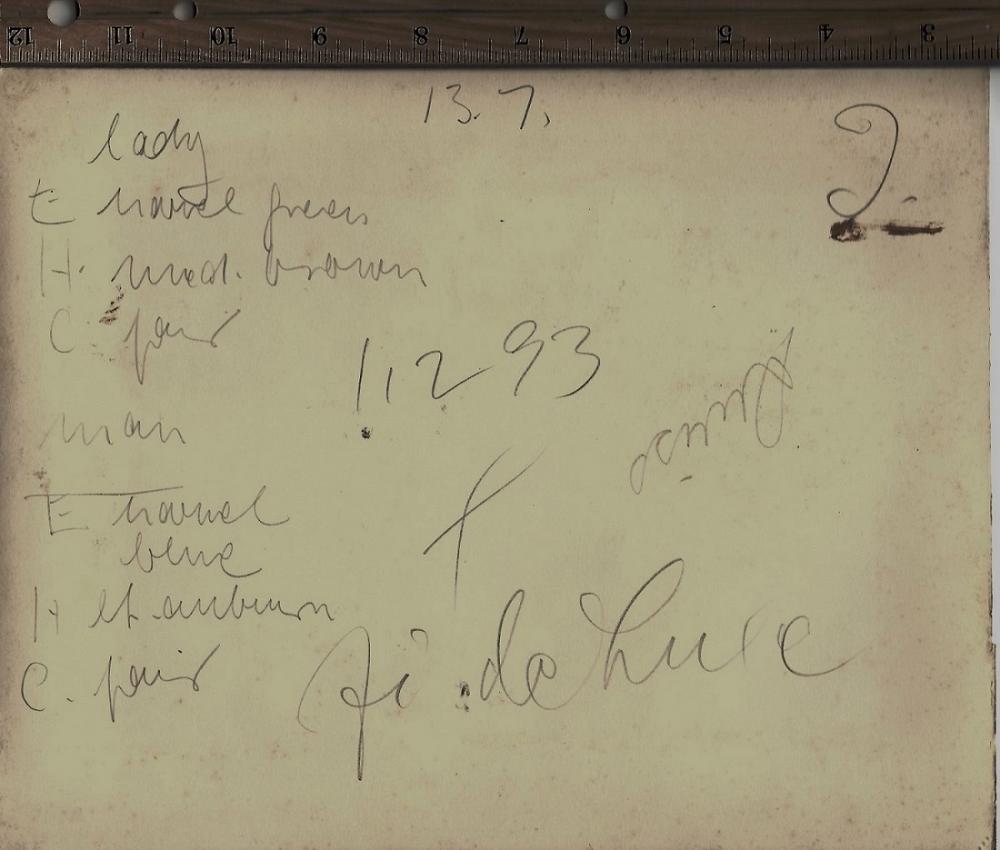 12 11 10 9 8 7 6 5 4 3
13. 7.
2.
lady
E hazel green
H. med. brown
C. fair
11293
man
E hazel
blue
H lt. auburn
C. fair
de Luxe